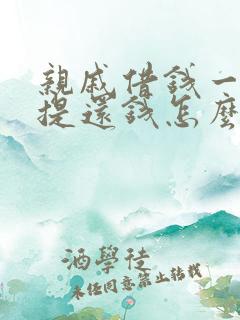 親戚借錢一
提還錢怎麼
酒學徒
未經同意禁止轉載